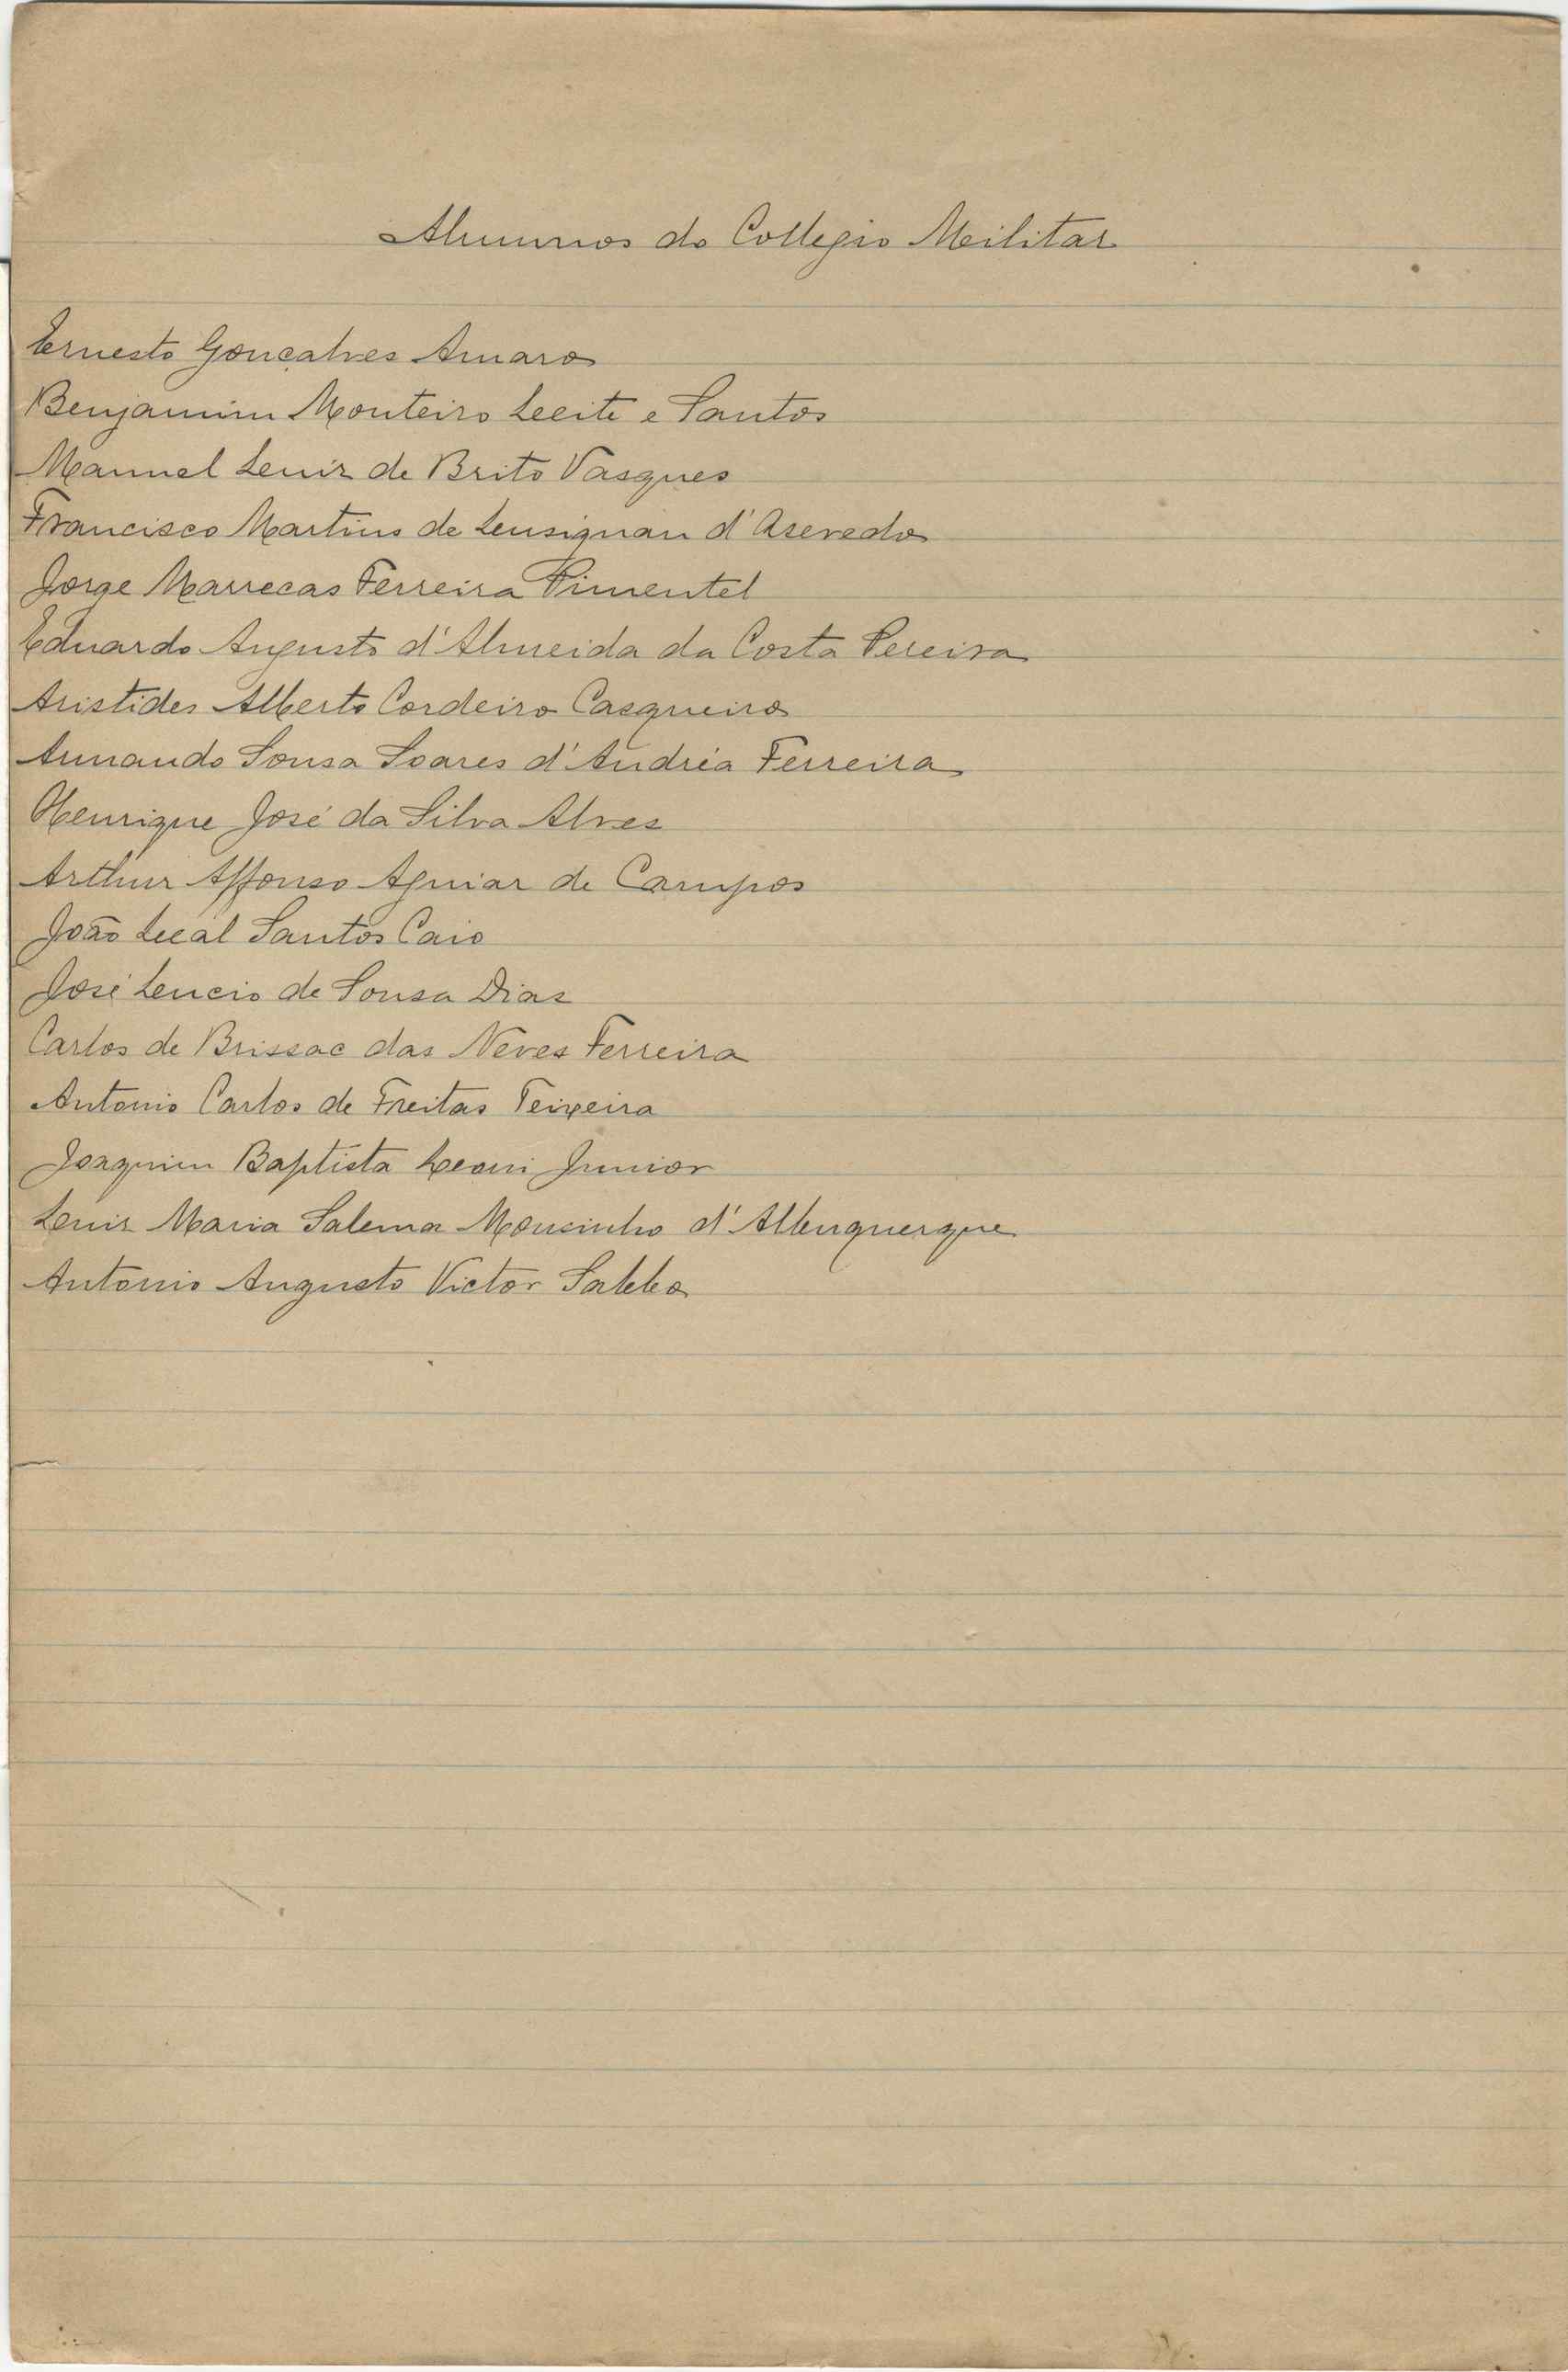 Alumnos do Collegio Militar
Ernesto Gonçalves Amaro
Benjamim Monteiro Leite e Santos
Manuel Luiz de Brito Vasques
Francisco Martins de Lusignan d'Asevedo
Jorge Marrecas Ferreira Pimentel
Eduardo Augusto d'Almeida da Costa Pereira
Aristides Alberto Cordeiro Casqueiro
Armando Sousa Soares d'Andréa Ferreira
Henrique José da Silva Alves
Arthur Affonso Aguiar de Campos
João Leal Santos Caio
José Lucio de Sousa Dias
Carlos de Brissac das Neves Ferreira
Antonio Carlos de Freitas Teixeira
Joaquim Baptista Leoni Junior
Luiz Maria Salema Mousinho d'Albuquerque
Antonio Augusto Victor Sabbo